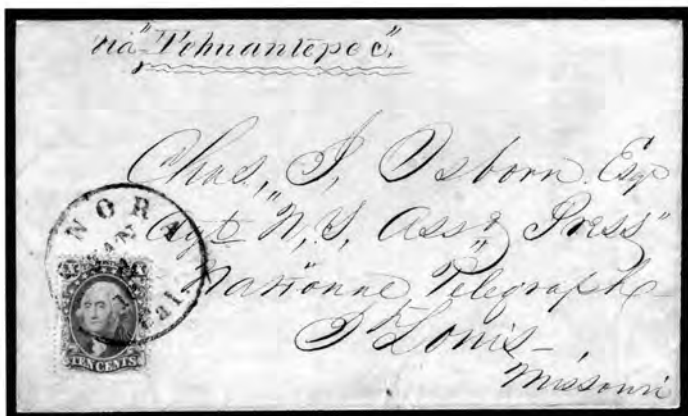 via "Tehuantepec".
Chas, J, Osborn Esqr
Agt N, Y, Ass'd Press"
National Telegraph
St Louis—
Missouri
NOR
JAN
Cal.
TEN CENTS